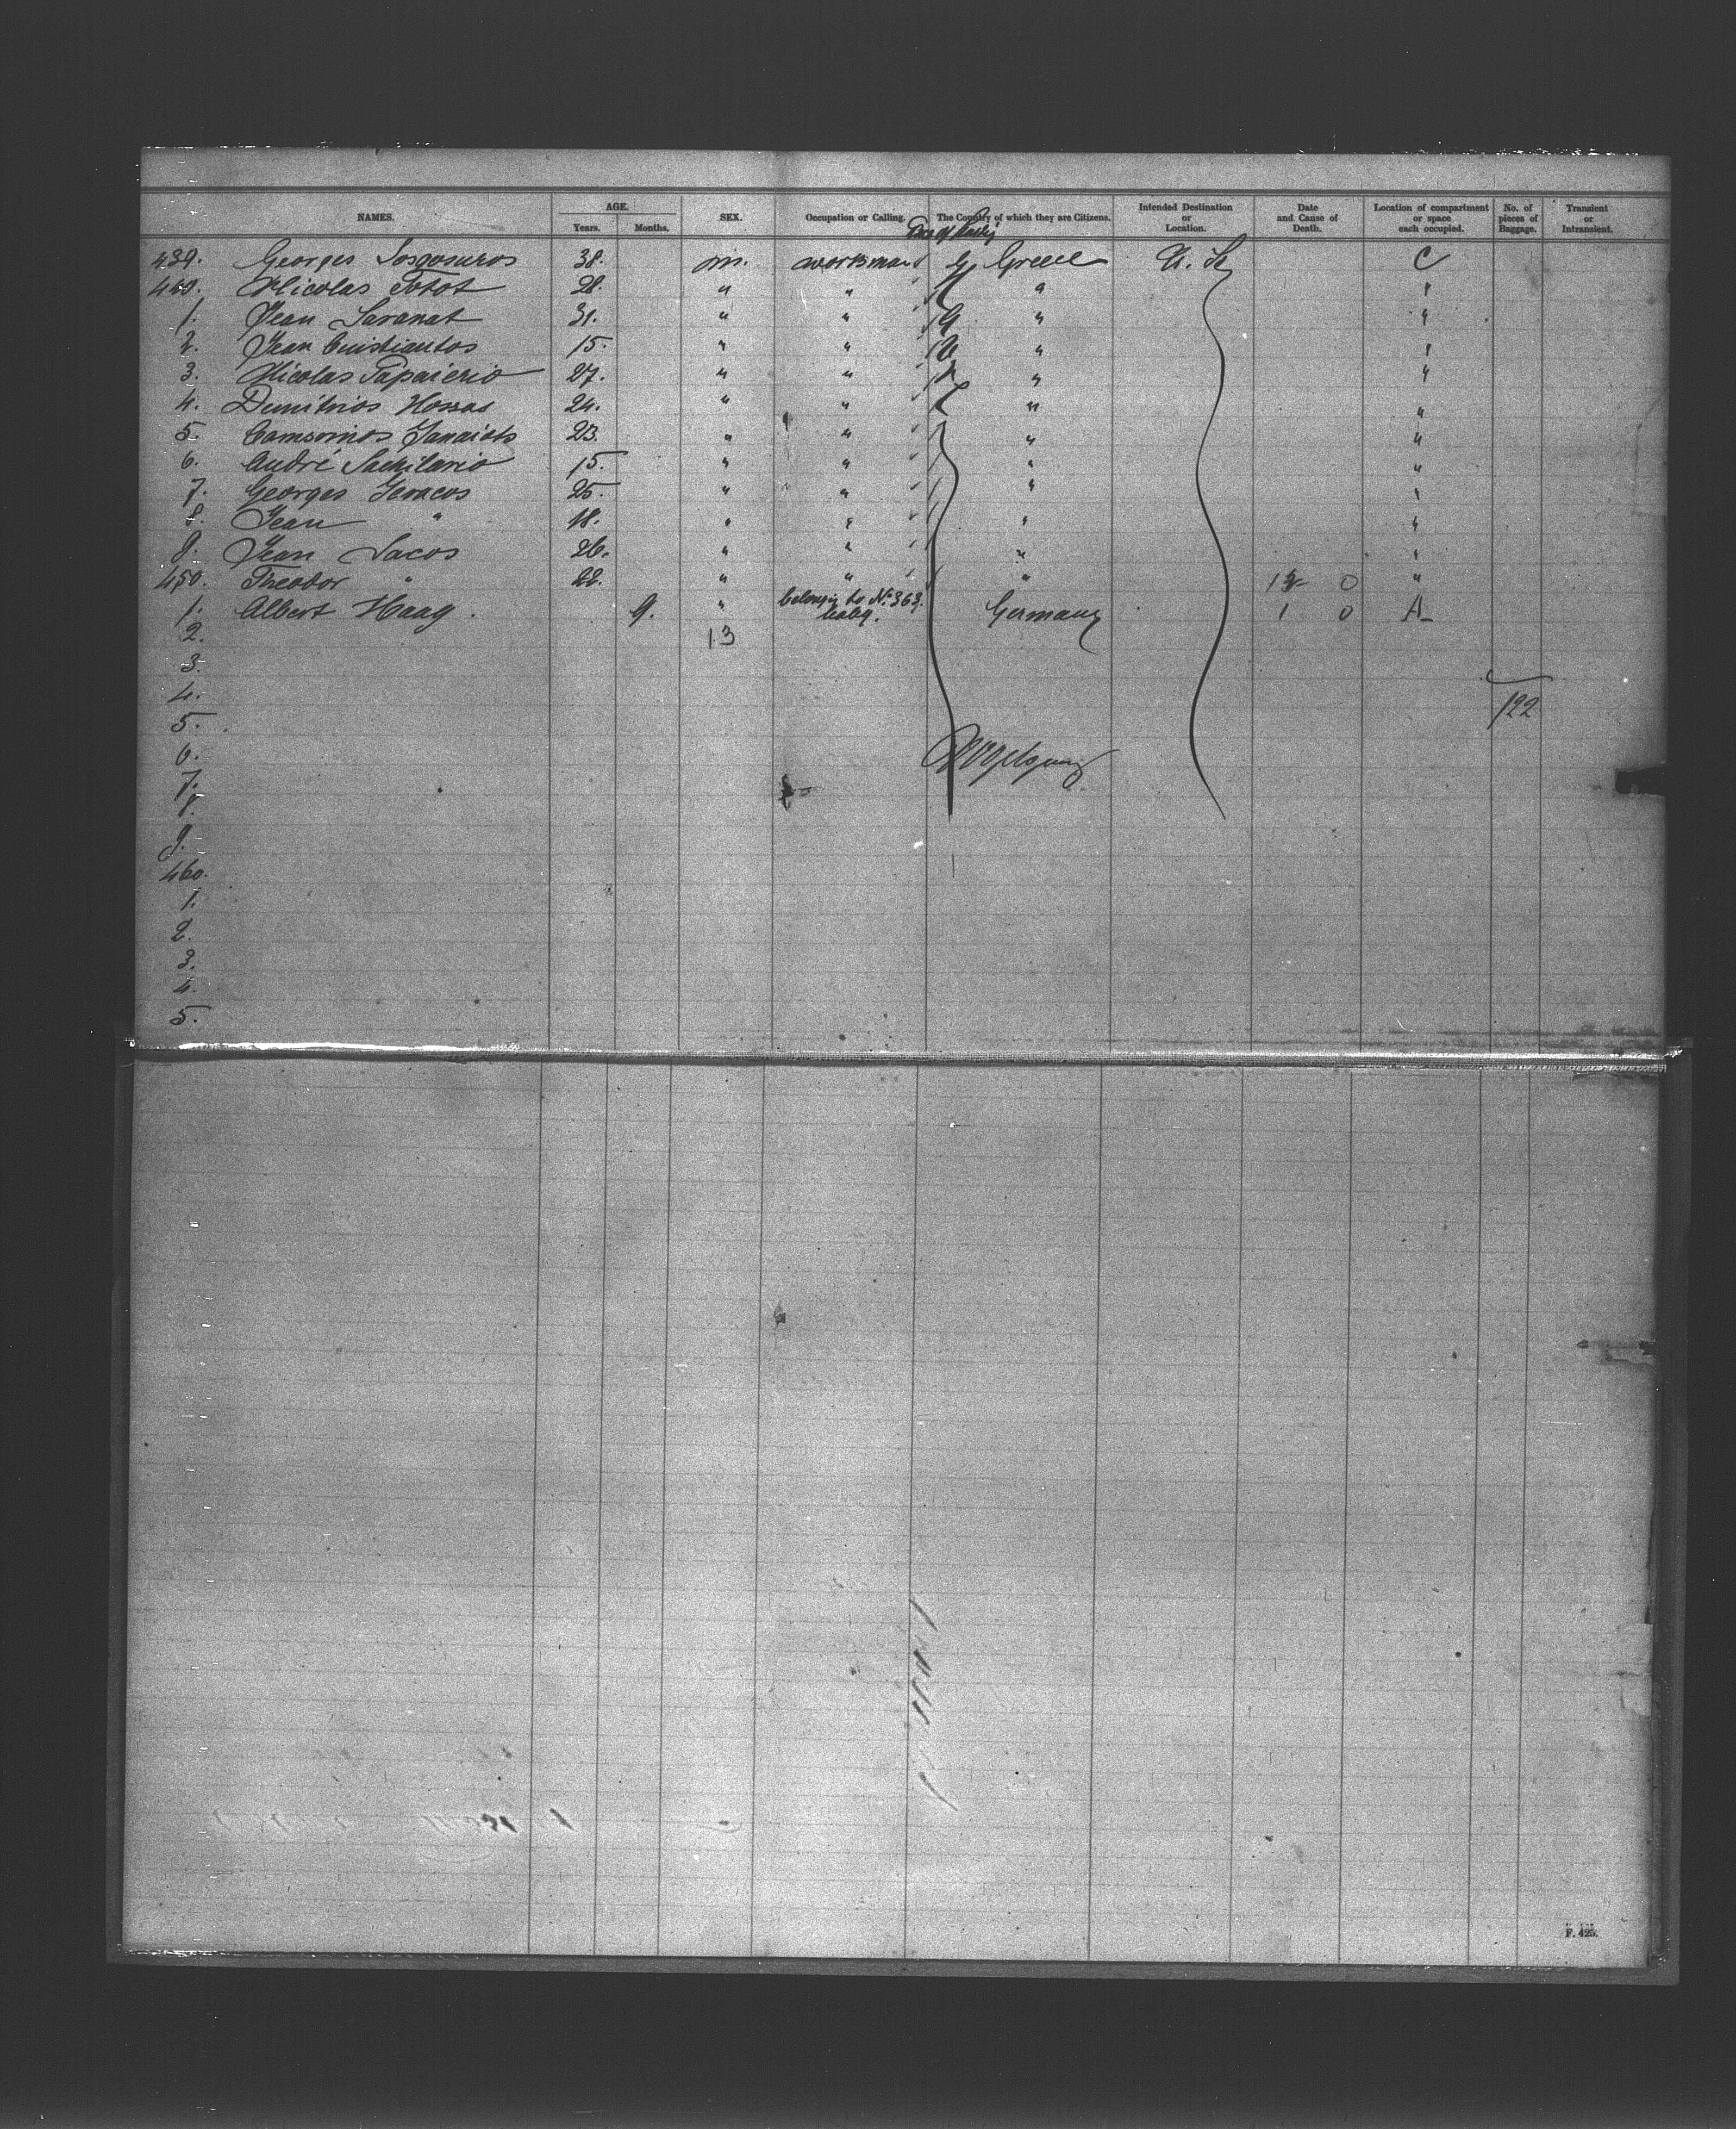 NAMES. AGE. Years. Months. SEX. Occupation or Calling. The Country of which they are Citizens. Intended Destination or Location. Date and Cause of Death. Location of compartment or space each occupied. No. of pieces of Baggage. Transient or Intransient.
439. Georges 38. m. workman Greece U. St. C
440. Nicolas Totot 28. " " " "
1. Jean Saranat 31. " " " "
2. Jean 15. " " " "
3. Nicolas Papaierio 27. " " " "
4. Dimitrios Hossas 24. " " " "
5. 23. " " " "
6. André Sachilario 15. " " " "
7. Georges Geracos 25. " " " "
8. Jean " 18. " " " "
9. Jean Sacos 26. " " " "
450. Theodor " 22. " " " 12 0 "
1. Albert Haag. 9. " belongin to No. 363. baby. Germany 1 0 A
2. 13
3.
4.
122
5.
6.
7.
8.
9.
460.
1.
2.
3.
4.
5.
F. 425.